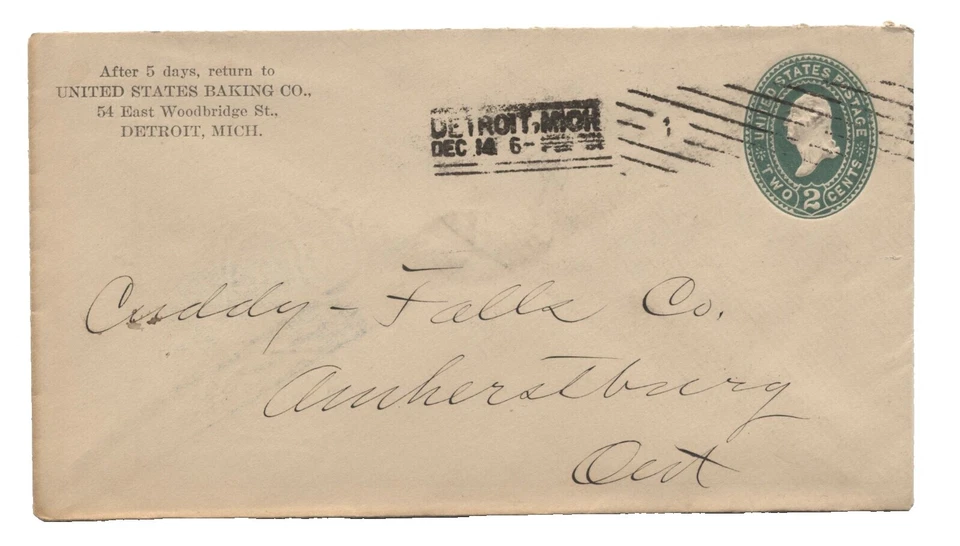 After 5 days, return to
UNITED STATES BAKING CO.,
54 East Woodbridge St.,
DETROIT, MICH.
DETROIT, MICH
DEC 14 6-
1
UNITED STATES POSTAGE
TWO 2 CENTS
Cuddy - Falls Co.
Amherstburg
Ont